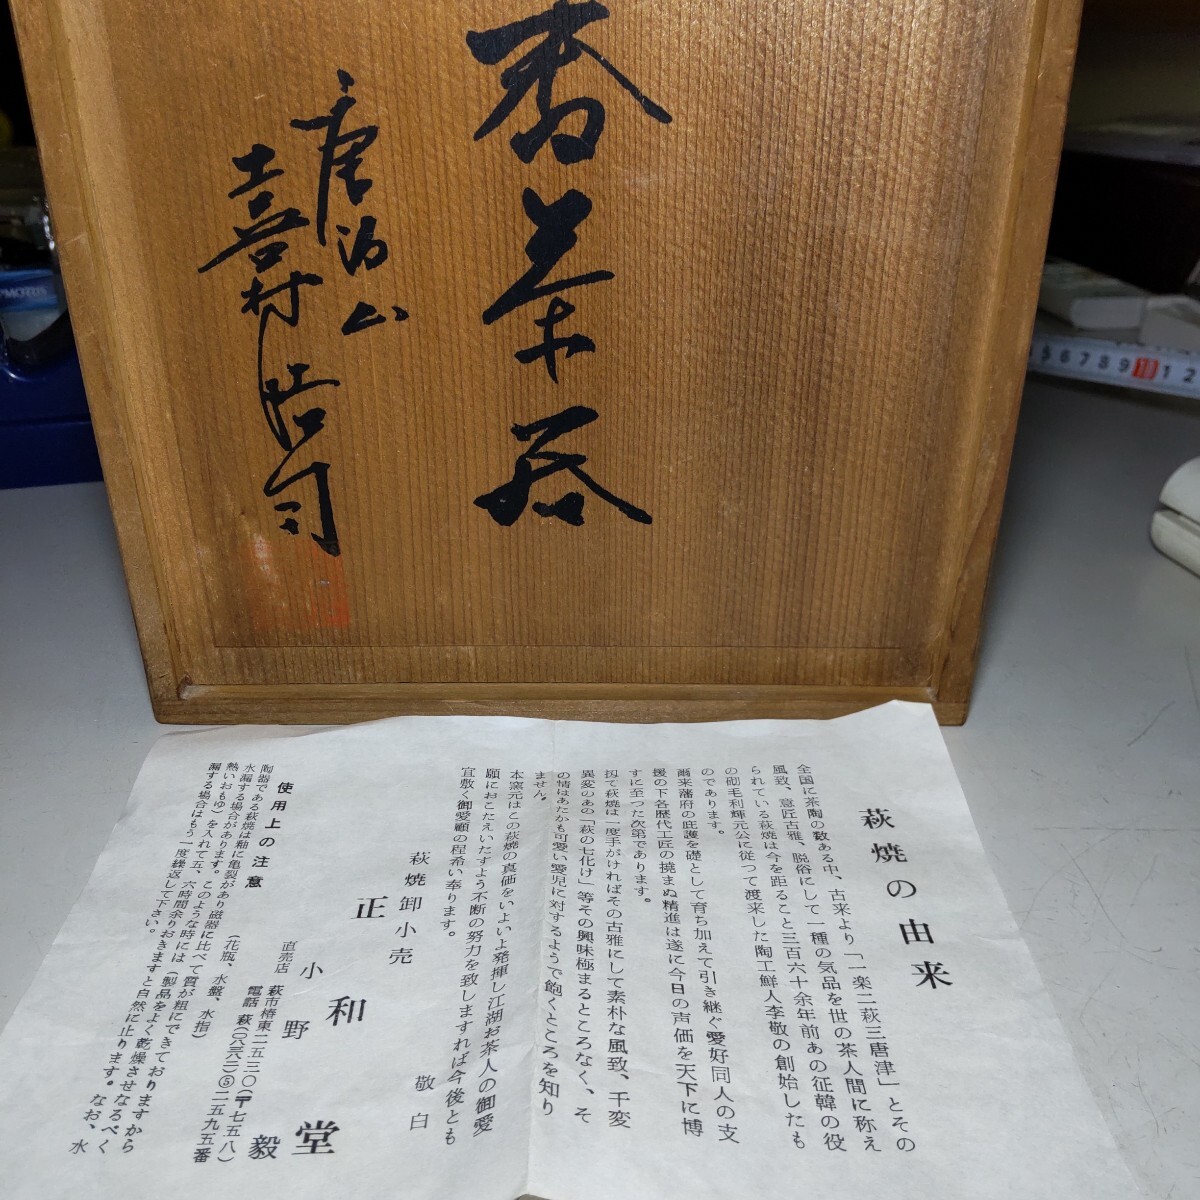 番茶器
唐治山
喜村浩司
萩焼の由来
全国に茶陶の数ある中、古来より「一楽二萩三唐津」とその
風致、意匠古雅、脱俗にして一種の気品を世の茶人間に称え
られている萩焼は今を距ること三百六十余年前あの征韓の役
の砌毛利輝元公に従つて渡来した陶工鮮人李敬の創始したも
のであります。
爾来藩府の庇護を礎として育ち加えて引き継ぐ愛好同人の支
援の下各歴代工匠の撓まぬ精進は遂に今日の声価を天下に博
すに至つた次第であります。
扨て萩焼は一度手がければその古雅にして素朴な風致、千変
異変のあの「萩の七化け」等その興味極まるところなく、そ
の情はあたかも可愛い愛児に対するようで飽くところを知り
ません。
本窯元はこの萩焼の真価をいよいよ発揮し江湖お茶人の御愛
願におこたえいたすよう不断の努力を致しますれば今後とも
宜敷く御愛顧の程希い奉ります。
敬白
萩焼卸小売
正和堂
小野毅
直売店 萩市椿東二五三〇(〒七五八)
電話 萩(〇八三八二)⑤二五九五番
使用上の注意
(花瓶、水盤、水指)
陶器である萩焼は釉に亀裂があり磁器に比べて質が粗にできておりますから
水漏する場合があります。このような時には(製品をよく乾燥させなるべく
熱いおもゆ)を入れて五、六時間余りおきますと自然に止ります。なお、水
漏する場合はもう一度繰返して下さい。
5 6 7 8 9 10 1 2